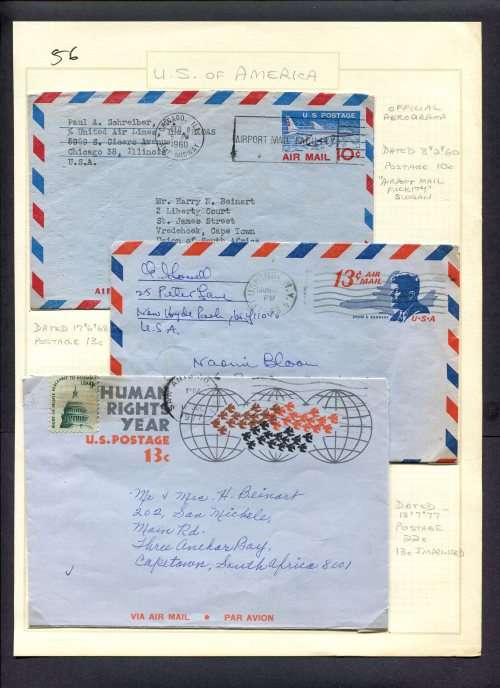 56
U.S. OF AMERICA
Paul A. Schreiber,
% United Air Lines,
5959 S. Cicero Avenue
Chicago 38, Illinois
U.S.A.
1960
AIRPORT MAIL FACILITY
U S POSTAGE
AIR MAIL 10c
Mr. Harry N. Beinart
2 Liberty Court
St. James Street
Vredehoek, Cape Town
Union of South Africa
OFFICIAL
AEROGRAM
DATED 8*2*60
POSTAGE 10c
"AIRPORT MAIL
SLOGAN
25 Peter Lane
New Hyde Park,
U.S.A.
PM
13c AIR
MAIL
JOHN F. KENNEDY
U·S·A
Naomi Bloom
DATED 17*6*68
POSTAGE 13c
HUMAN
RIGHTS
YEAR
U.S. POSTAGE
13c
Mr & Mrs. H. Beinart
202, San Michele,
Main Rd.
Three Anchor Bay,
Capetown, South Africa 8001
VIA AIR MAIL * PAR AVION
DATED
18*7*77
POSTAGE
22c
13c IMPRINTED